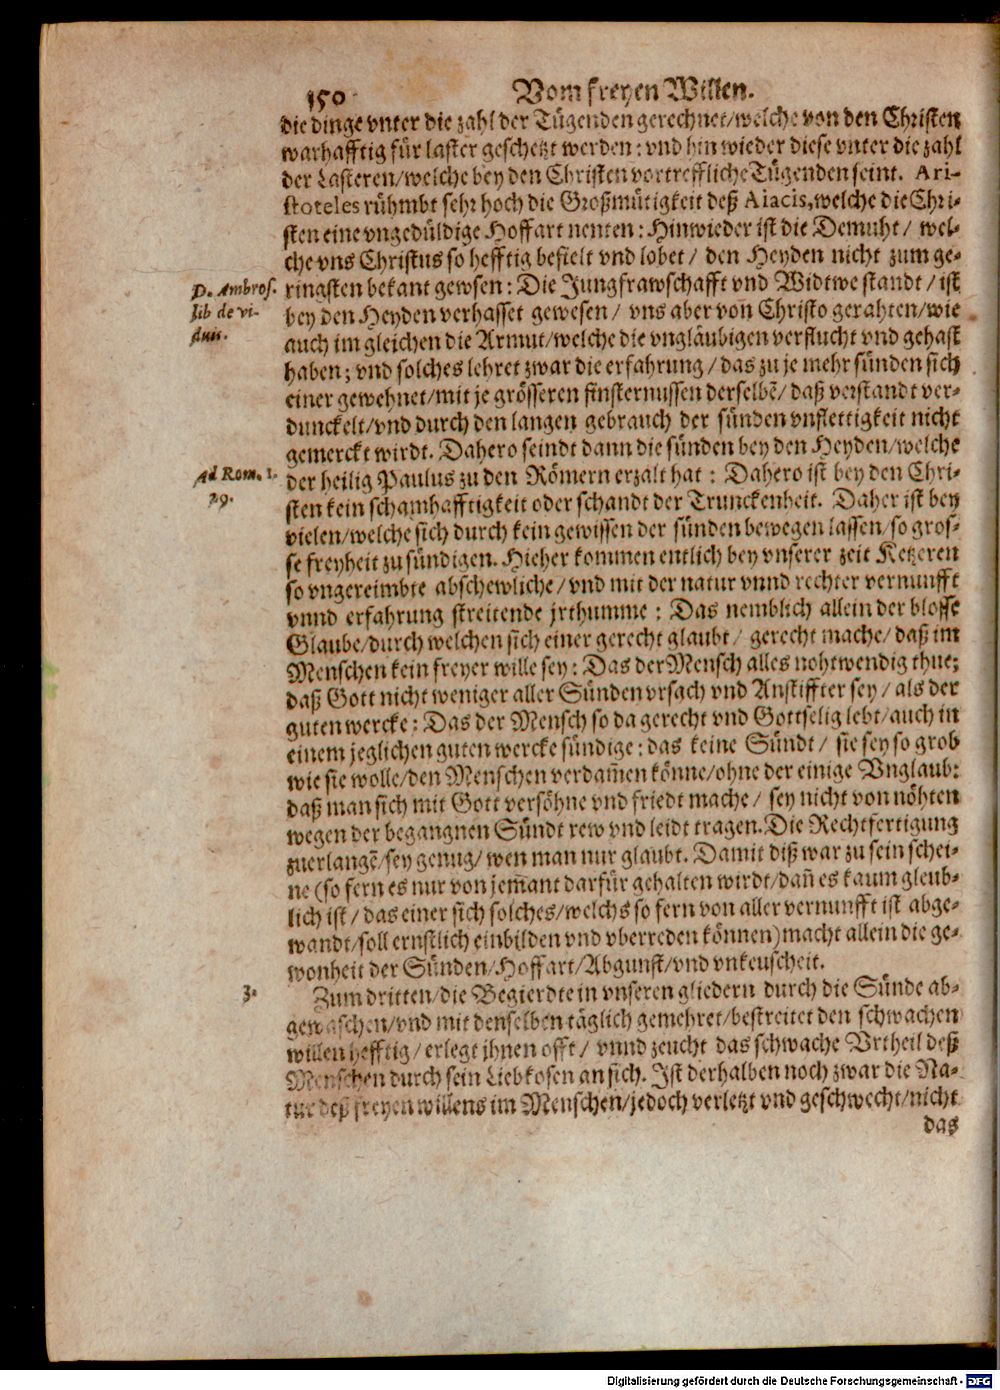 150 Vom freyen Willen.
die dinge vnter die zahl der Tügenden gerechnet/welche von den Christen
warhafftig für laster geschetzt werden: vnd hinwieder diese vnter die zahl
der Lasteren/welche bey den Christen vortreffliche Tügenden seint. Ari-
stoteles rühmbt sehr hoch die Großmütigkeit deß Aiacis, welche die Chri-
sten eine vngedüldige Hoffart nenten: Hinwieder ist die Demuht/ wel-
che vns Christus so hefftig befielt vnd lobet/ den Heyden nicht zum ge-
D. Ambros.
lib de vi-
duis.
ringsten bekant gewsen: Die Jungfrawschafft vnd Widtwe standt/ ist
bey den Heyden verhasset gewesen/ vns aber von Christo gerahten/wie
auch im gleichen die Armut/welche die vngläubigen verflucht vnd gehast
haben; vnd solches lehret zwar die erfahrung/ das zu je mehr sünden sich
einer gewehnet/mit je grösseren finsternussen derselbē/ daß verstandt ver-
dunckelt/vnd durch den langen gebrauch der sünden vnflettigkeit nicht
gemerckt wirdt. Dahero seindt dann die sünden bey den Heyden/welche
Ad Rom. 1.
29.
der heilig Paulus zu den Römern erzalt hat: Dahero ist bey den Chri-
sten kein schamhafftigkeit oder schandt der Trunckenheit. Daher ist bey
vielen/welche sich durch kein gewissen der sünden bewegen lassen/so gros-
se freyheit zu sündigen. Hieher kommen entlich bey vnserer zeit Ketzeren
so vngereimbte abschewliche/ vnd mit der natur vnnd rechter vernunfft
vnnd erfahrung streitende jrthumme: Das nemblich allein der blosse
Glaube/durch welchen sich einer gerecht glaubt/ gerecht mache/ daß im
Menschen kein freyer wille sey: Das der Mensch alles nohtwendig thue;
daß Gott nicht weniger aller Sünden vrsach vnd Anstiffter sey/ als der
guten wercke: Das der Mensch so da gerecht vnd Gottselig lebt/auch in
einem jeglichen guten wercke sündige: das keine Sündt/ sie sey so grob
wie sie wolle/den Menschen verdam̄en könne/ohne der einige Vnglaub:
daß man sich mit Gott versöhne vnd friedt mache/ sey nicht von nöhten
wegen der begangnen Sündt rew vnd leidt tragen. Die Rechtfertigung
zuerlangē/sey genug/ wen man nur glaubt. Damit diß war zu sein schei-
ne (so fern es nur von jem̄ant darfür gehalten wirdt/dan̄ es kaum gleub-
lich ist/ das einer sich solches/welchs so fern von aller vernunfft ist abge-
wandt/soll ernstlich einbilden vnd vberreden können) macht allein die ge-
wonheit der Sünden/Hoffart/Abgunst/vnd vnkeuscheit.
3.
Zum dritten/die Begierdte in vnseren gliedern durch die Sünde ab-
gewaschen/vnd mit denselben täglich gemehret/bestreitet den schwachen
willen hefftig/ erlegt jhnen offt/ vnnd zeucht das schwache Vrtheil deß
Menschen durch sein Liebkosen an sich. Ist derhalben noch zwar die Na-
tur deß freyen willens im Menschen/jedoch verletzt vnd geschwecht/nicht
das
Digitalisierung gefördert durch die Deutsche Forschungsgemeinschaft - DFG